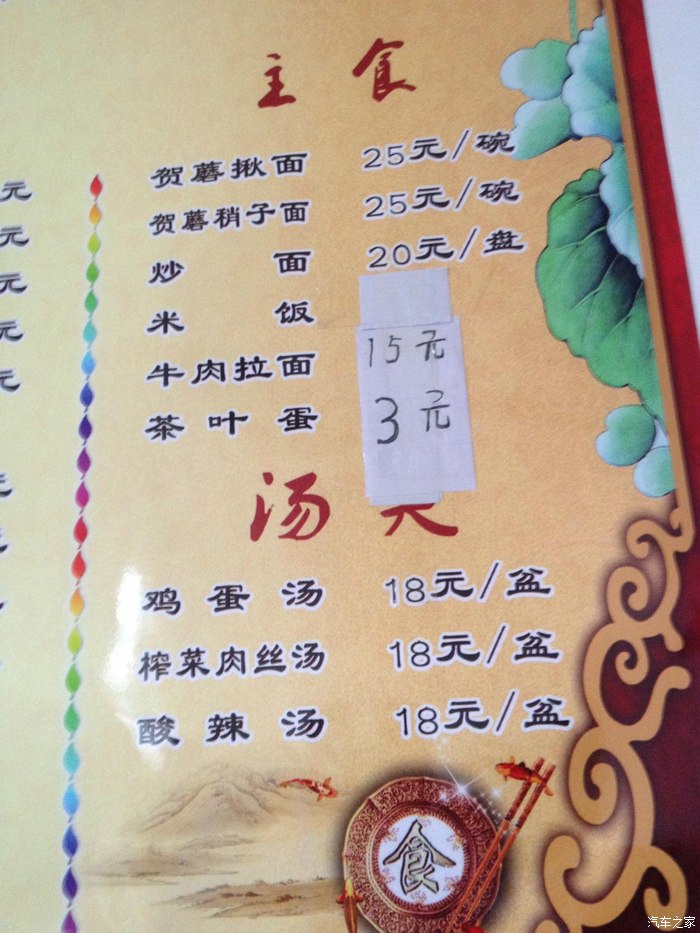 主食
贺蘑揪面 25元/碗
贺蘑稍子面 25元/碗
炒面 20元/盘
米饭
牛肉拉面 15元
茶叶蛋 3元
汤
鸡蛋汤 18元/盆
榨菜肉丝汤 18元/盆
酸辣汤 18元/盆
食
元
元
元
元
元
汽车之家